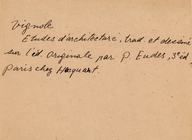 Vignole
Etudes d'architecture, trad. et dessiné
sur l'éd. originale par P. Eudes, 3e éd.
Paris chez Hocquart.